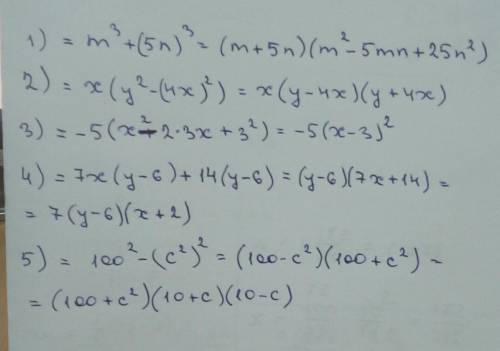 1) = m³+(5n)³= (m+5n)(m²-5mn+25n²)
2) = x(y²-(4x)²) = x(y-4x)(y+4x)
3) = -5(x²-2·3x+3²)= -5(x-3)²
4) = 7x(y-6)+14(y-6)=(y-6)(7x+14)=
= 7(y-6)(x+2)
5) = 100²-(c²)²= (100-c²)(100+c²) =
= (100+c²)(10+c)(10-c)